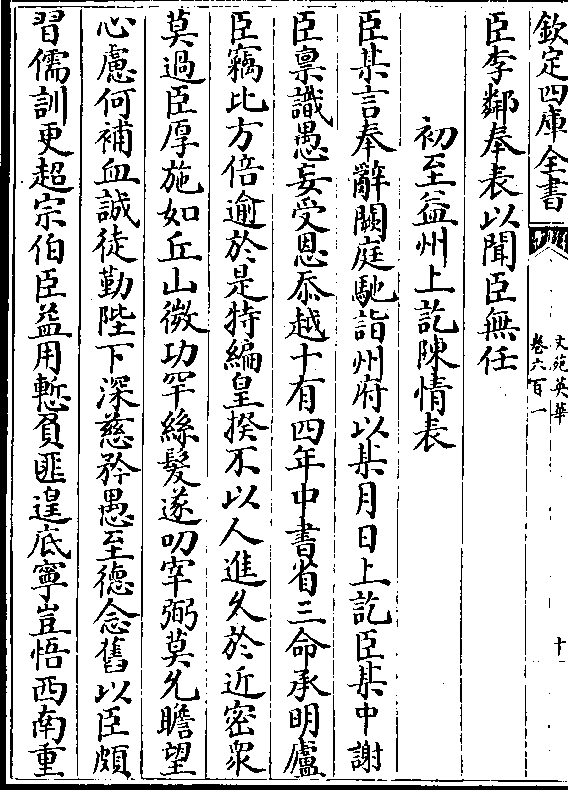 欽定四庫全書
文苑英華
卷六百一
十
臣李鄰奉表以聞臣無任
初至益州上訖陳情表
臣某言奉辭闕庭馳詣州府以某月日上訖臣某中謝
臣禀識愚妄受恩忝越十有四年中書省三命承明廬
臣竊比方倍逾於是特編皇揆不以人進久於近密衆
莫過臣厚施如丘山微功罕絲髮遂叨宰弼莫允瞻望
心慮何補血誠徒勤陛下深慈矜愚至德念舊以臣頗
習儒訓更超宗伯臣益用慙負匪遑底寧豈悟西南重